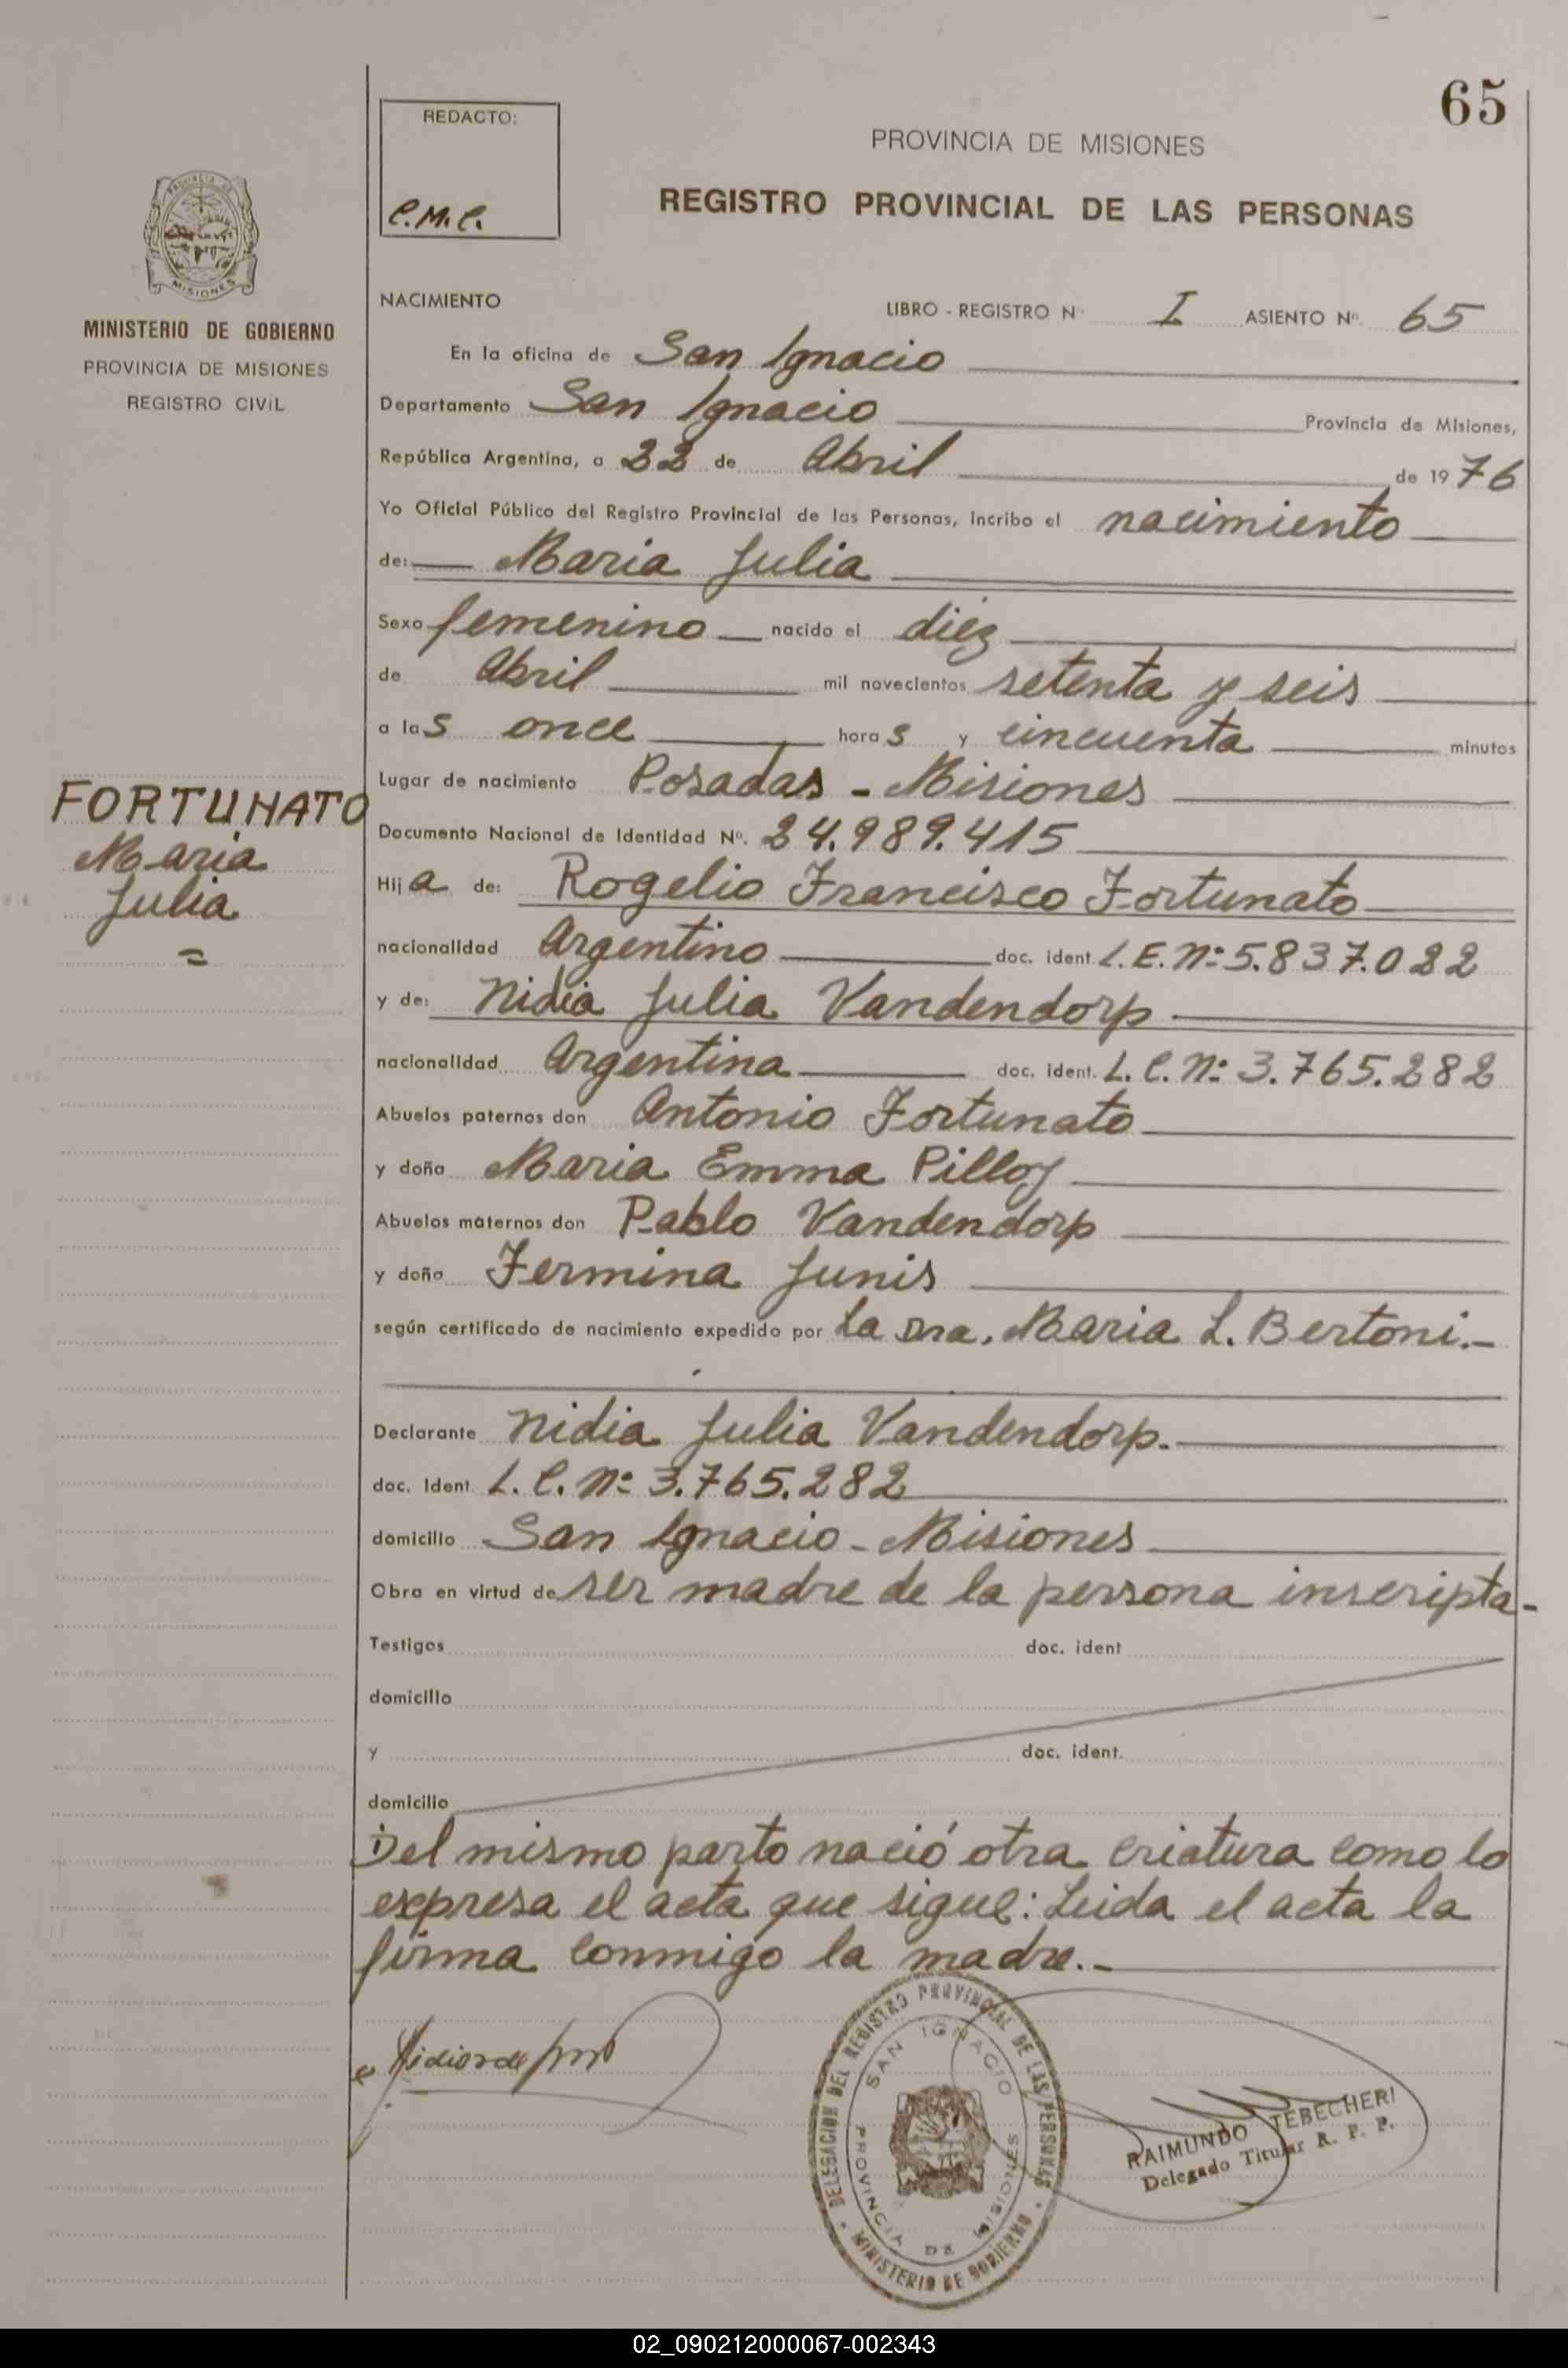 65
REDACTO:
C.M.C.
PROVINCIA DE MISIONES
REGISTRO PROVINCIAL DE LAS PERSONAS
PROVINCIA DE
MISIONES
MINISTERIO DE GOBIERNO
PROVINCIA DE MISIONES
REGISTRO CIVIL
NACIMIENTO
LIBRO - REGISTRO Nº I ASIENTO Nº. 65
En la oficina de San Ignacio
Departamento San Ignacio Provincia de Misiones,
República Argentina, a 22 de Abril de 1976
Yo Oficial Público del Registro Provincial de las Personas, incribo el nacimiento
de: Maria Julia
Sexo femenino nacido el diez
de Abril mil novecientos setenta y seis
a las once horas y cincuenta minutos
Lugar de nacimiento Posadas - Misiones
FORTUNATO
Maria
Julia
=
Documento Nacional de Identidad Nº. 24.989.415
Hija de: Rogelio Francisco Fortunato
nacionalidad Argentino doc. ident. L.E. Nº 5.837.022
y de: Nidia Julia Vandendorp
nacionalidad Argentina doc. ident. L.C. Nº 3.765.282
Abuelos paternos don Antonio Fortunato
y doña Maria Emma Pilloy
Abuelos maternos don Pablo Vandendorp
y doña Fermina Junis
según certificado de nacimiento expedido por La Dra. Maria L. Bertoni.-
Declarante Nidia Julia Vandendorp.
doc. Ident. L.C. Nº 3.765.282
domicilio San Ignacio - Misiones
Obra en virtud de ser madre de la persona inscripta-
Testigos doc. ident
domicilio
y doc. ident.
domicilio
Del mismo parto nació otra criatura como lo
expresa el acta que sigue: Leida el acta la
firma conmigo la madre.-
DELEGACION DEL REGISTRO PROVINCIAL DE LAS PERSONAS
SAN IGNACIO
PROVINCIA DE MISIONES
MINISTERIO DE GOBIERNO
RAIMUNDO TEBECHERI
Delegado Titular R. P. P.
02_090212000067-002343